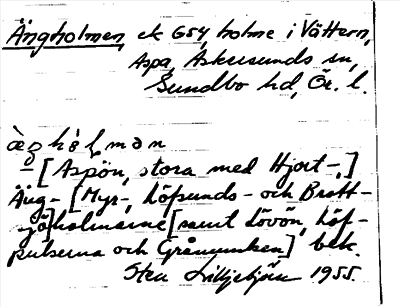 Ängholmen, ek G54, holme i Vättern,
Aspa, Askersunds sn,
Sundbo hd, Ör. l.
àŋhòlmən
– [Aspön, stora med Hjort-,]
Äng- [Myr-, Löfsunds- och Brott-
jö]holmarne [samt Lövön, Löf-
och Gråmunken] bek.
Sten Lilljebjörn 1955.